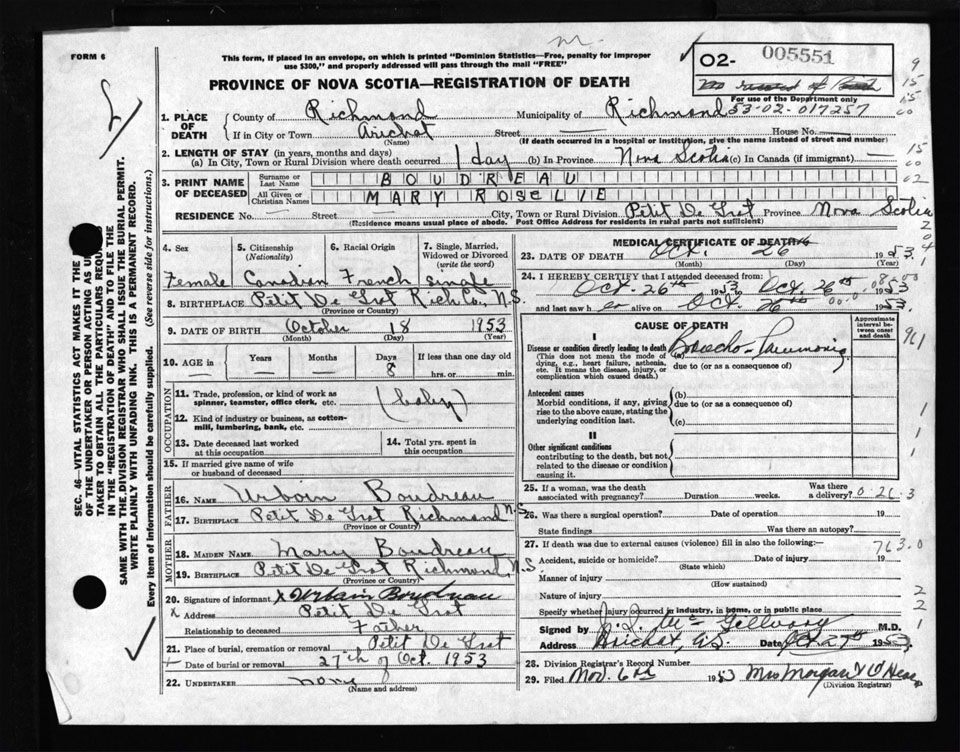 FORM 6
This form, if placed in an envelope, on which is printed "Dominion Statistics—Free, penalty for improper
use $300," and properly addressed will pass through the mail "FREE"
PROVINCE OF NOVA SCOTIA—REGISTRATION OF DEATH
02- 005551
For use of the Department only
53-02-017257
SEC. 46—VITAL STATISTICS ACT MAKES IT THE
OF THE UNDERTAKER OR PERSON ACTING AS
TAKER TO OBTAIN ALL THE PARTICULARS
IN THE "REGISTRATION OF DEATH" AND TO FILE THE
SAME WITH THE DIVISION REGISTRAR WHO SHALL ISSUE THE BURIAL PERMIT.
WRITE PLAINLY WITH UNFADING INK. THIS IS A PERMANENT RECORD.
Every item of information should be carefully supplied. (See reverse side for instructions.)
1. PLACE OF DEATH
County of Richmond Municipality of Richmond
If in City or Town Arichat Street — House No. —
(Name) (If death occurred in a hospital or institution, give the name instead of street and number)
2. LENGTH OF STAY (in years, months and days)
(a) In City, Town or Rural Division where death occurred 1 day (b) In Province Nova Scotia (c) In Canada (if immigrant) —
3. PRINT NAME OF DECEASED
Surname or Last Name BOUDREAU
All Given or Christian Names MARY ROSELIE
RESIDENCE No. — Street — City, Town or Rural Division Petit De Grat Province Nova Scotia
(Residence means usual place of abode. Post Office Address for residents in rural parts not sufficient)
4. Sex Female
5. Citizenship (Nationality) Canadian
6. Racial Origin French
7. Single, Married, Widowed or Divorced (write the word) single
8. BIRTHPLACE Petit De Grat Rich Co, N.S.
(Province or Country)
9. DATE OF BIRTH October 18 1953
(Month) (Day) (Year)
10. AGE in Years — Months — Days 8 If less than one day old
hrs. or min.
OCCUPATION
11. Trade, profession, or kind of work as
spinner, teamster, office clerk, etc. (baby)
12. Kind of industry or business, as cotton-
mill, lumbering, bank, etc.
13. Date deceased last worked
at this occupation
14. Total yrs. spent in
this occupation
15. If married give name of wife
or husband of deceased
FATHER
16. NAME Urbain Boudreau
17. BIRTHPLACE Petit De Grat Richmond N.S
(Province or Country)
MOTHER
18. MAIDEN NAME Mary Boudreau
19. BIRTHPLACE Petit De Grat Richmond, N.S
(Province or Country)
20. Signature of informant X Urbain Boudreau
X Address Petit De Grat
Relationship to deceased Father
21. Place of burial, cremation or removal Petit De Grat
Date of burial or removal 27th of Oct. 1953
22. UNDERTAKER none
(Name and address)
MEDICAL CERTIFICATE OF DEATH
23. DATE OF DEATH Oct. 26th 1953
(Month) (Day) (Year)
24. I HEREBY CERTIFY that I attended deceased from:
Oct. 26th 1953 to Oct. 26th 1953
and last saw h er alive on Oct. 26th 1953.
CAUSE OF DEATH
Approximate interval between onset and death
I
Disease or condition directly leading to death (a) Broncho-Pneumonia
(This does not mean the mode of
dying, e.g., heart failure, asthenia,
etc. It means the disease, injury, or
complication which caused death.)
due to (or as a consequence of)
Antecedent causes
Morbid conditions, if any, giving
rise to the above cause, stating the
underlying condition last.
(b)
due to (or as a consequence of)
(c)
II
Other significant conditions
contributing to the death, but not
related to the disease or condition
causing it.
25. If a woman, was the death
associated with pregnancy? Duration weeks. Was there
a delivery? 0-26.3
26. Was there a surgical operation? Date of operation 19
State findings Was there an autopsy?
27. If death was due to external causes (violence) fill in also the following:— 763.0
Accident, suicide or homicide? Date of injury 19
(State which)
Manner of injury
(How sustained)
Nature of injury
Specify whether injury occurred in industry, in home, or in public place
Signed by M.D.
Address Arichat, N.S. Date Oct 27th 1953
28. Division Registrar's Record Number
29. Filed Nov. 6th 1953 Mrs Morgan
(Division Registrar)